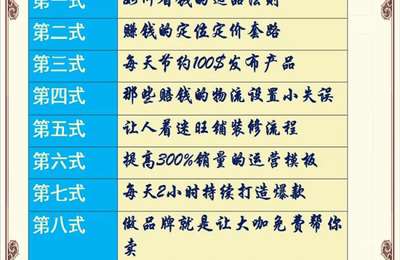 第一式
第二式 赚钱的定位定价套路
第三式 每天节约100$发布产品
第四式 那些赔钱的物流设置小失误
第五式 让人着迷旺铺装修流程
第六式 提高300%销量的运营模板
第七式 每天2小时持续打造爆款
第八式 做品牌就是让大咖免费帮你
卖